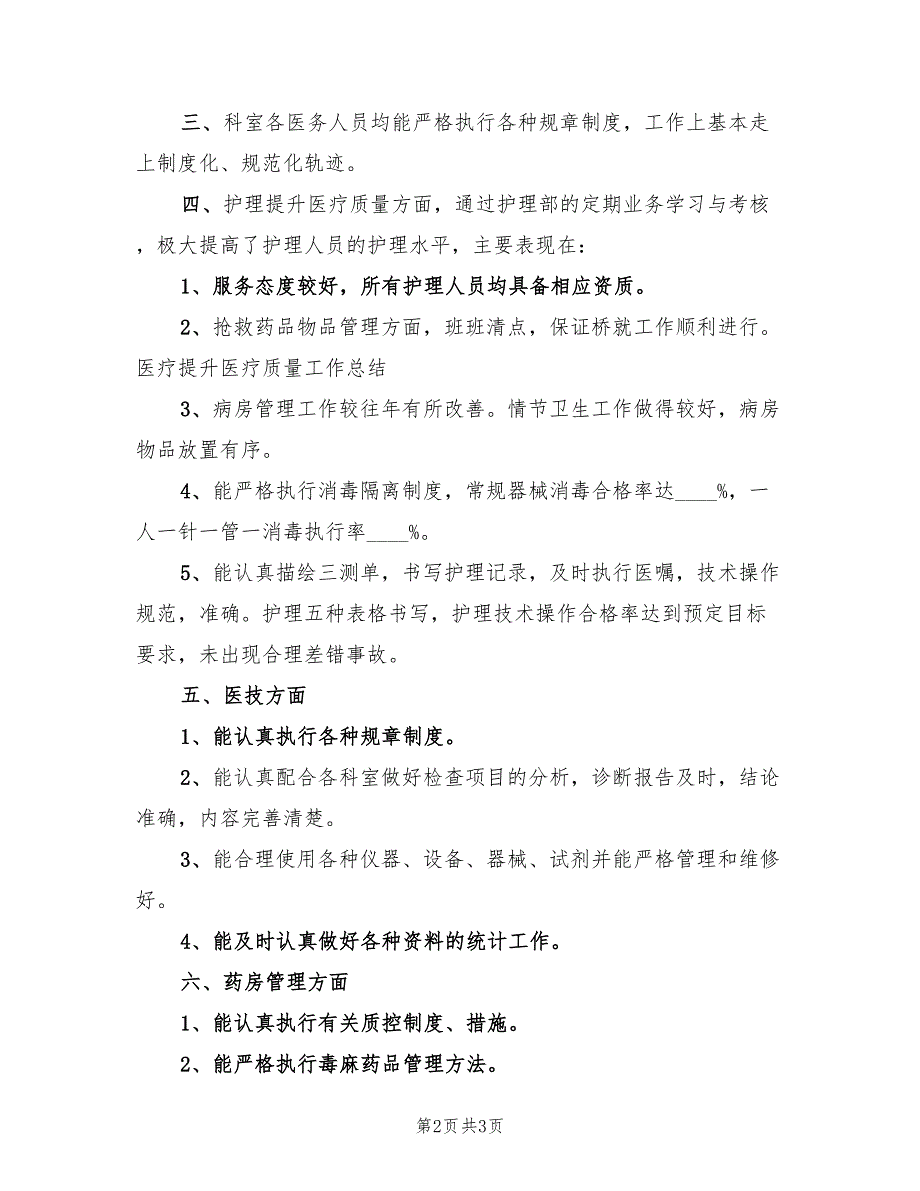 三、科室各医务人员均能严格执行各种规章制度，工作上基本走
上制度化、规范化轨迹。
四、护理提升医疗质量方面，通过护理部的定期业务学习与考核
，极大提高了护理人员的护理水平，主要表现在：
1、服务态度较好，所有护理人员均具备相应资质。
2、抢救药品物品管理方面，班班清点，保证桥就工作顺利进行。
医疗提升医疗质量工作总结
3、病房管理工作较往年有所改善。情节卫生工作做得较好，病房
物品放置有序。
4、能严格执行消毒隔离制度，常规器械消毒合格率达____%，一
人一针一管一消毒执行率____%。
5、能认真描绘三测单，书写护理记录，及时执行医嘱，技术操作
规范，准确。护理五种表格书写，护理技术操作合格率达到预定目标
要求，未出现合理差错事故。
五、医技方面
1、能认真执行各种规章制度。
2、能认真配合各科室做好检查项目的分析，诊断报告及时，结论
准确，内容完善清楚。
3、能合理使用各种仪器、设备、器械、试剂并能严格管理和维修
好。
4、能及时认真做好各种资料的统计工作。
六、药房管理方面
1、能认真执行有关质控制度、措施。
2、能严格执行毒麻药品管理方法。
第2页 共3页